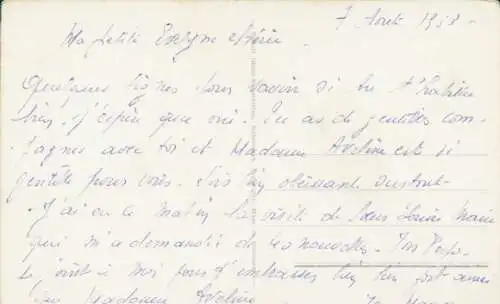 7 Août 1958 -
Ma petite Evelyne chérie.
Quelques lignes pour savoir si tu t'habitue
bien, j'espère que oui. Tu as de gentilles com-
pagnes avec toi et Madame Aveline est si
gentille pour vous. Sois bien obéissante surtout.
J'ai eu ce matin la visite de Marie
qui m'a demandé de tes nouvelles. Ton Papa
se joint à moi pour t'embrasser bien bien fort
Madame Aveline